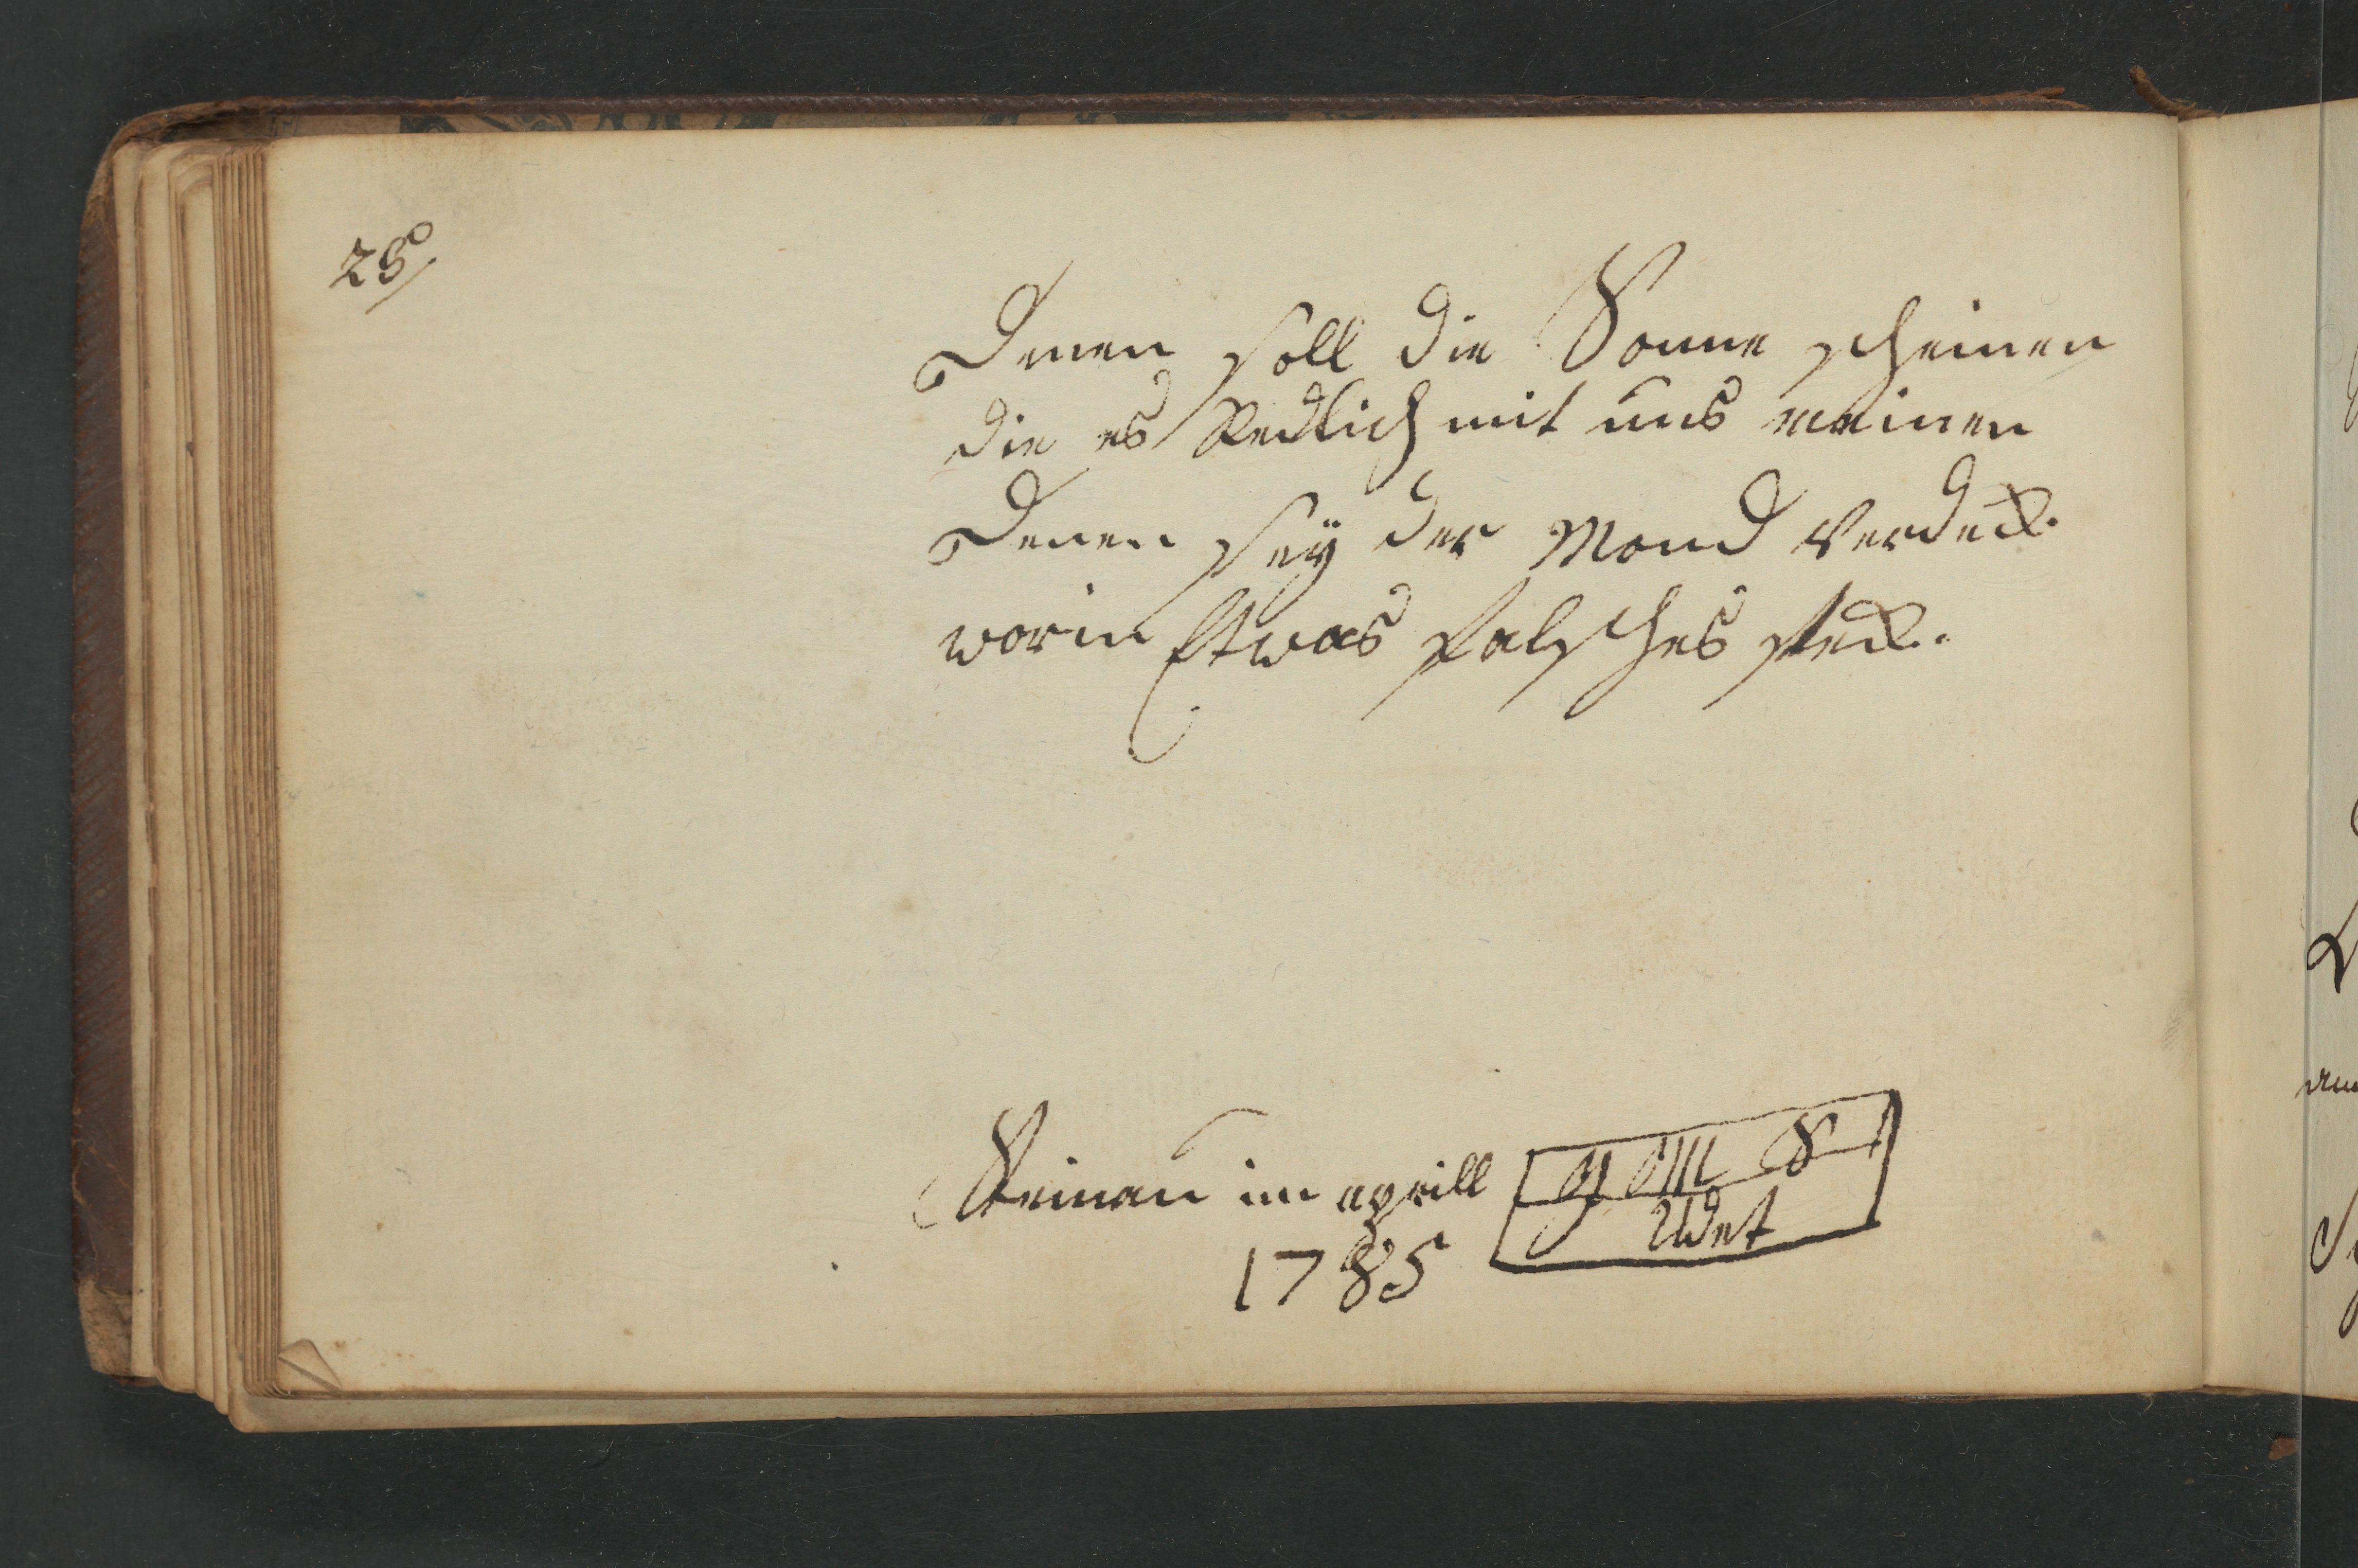 28.
Denen soll die Sonne scheinen
die es Redlich mit uns meinen
Denen seÿ der Mond verdeck.
worin Etwas falsches steck..
Steinau im aprill
1785